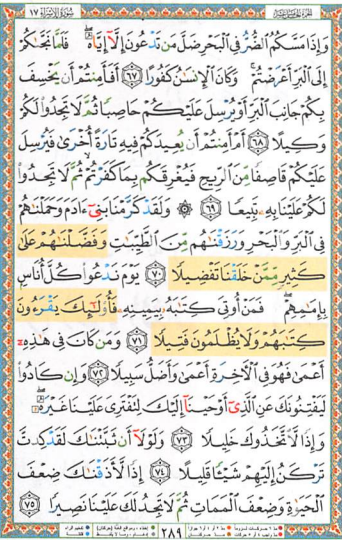 ١٧ سورة الإسراء
الجزء الخامس عشر
وَإِذَا مَسَّكُمُ ٱلضُّرُّ فِى ٱلْبَحْرِ ضَلَّ مَن تَدْعُونَ إِلَّآ إِيَّاهُ ۖ فَلَمَّا نَجَّىٰكُمْ
إِلَى ٱلْبَرِّ أَعْرَضْتُمْ ۚ وَكَانَ ٱلْإِنسَٰنُ كَفُورًا ٦٧ أَفَأَمِنتُمْ أَن يَخْسِفَ
بِكُمْ جَانِبَ ٱلْبَرِّ أَوْ يُرْسِلَ عَلَيْكُمْ حَاصِبًا ثُمَّ لَا تَجِدُوا۟ لَكُمْ
وَكِيلًا ٦٨ أَمْ أَمِنتُمْ أَن يُعِيدَكُمْ فِيهِ تَارَةً أُخْرَىٰ فَيُرْسِلَ
عَلَيْكُمْ قَاصِفًا مِّنَ ٱلرِّيحِ فَيُغْرِقَكُم بِمَا كَفَرْتُمْ ۙ ثُمَّ لَا تَجِدُوا۟
لَكُمْ عَلَيْنَا بِهِۦ تَبِيعًا ٦٩ ۞ وَلَقَدْ كَرَّمْنَا بَنِىٓ ءَادَمَ وَحَمَلْنَٰهُمْ
فِى ٱلْبَرِّ وَٱلْبَحْرِ وَرَزَقْنَٰهُم مِّنَ ٱلطَّيِّبَٰتِ وَفَضَّلْنَٰهُمْ عَلَىٰ
كَثِيرٍ مِّمَّنْ خَلَقْنَا تَفْضِيلًا ٧٠ يَوْمَ نَدْعُوا۟ كُلَّ أُنَاسٍۭ
بِإِمَٰمِهِمْ ۖ فَمَنْ أُوتِىَ كِتَٰبَهُۥ بِيَمِينِهِۦ فَأُو۟لَٰٓئِكَ يَقْرَءُونَ
كِتَٰبَهُمْ وَلَا يُظْلَمُونَ فَتِيلًا ٧١ وَمَن كَانَ فِى هَٰذِهِۦٓ
أَعْمَىٰ فَهُوَ فِى ٱلْءَاخِرَةِ أَعْمَىٰ وَأَضَلُّ سَبِيلًا ٧٢ وَإِن كَادُوا۟
لَيَفْتِنُونَكَ عَنِ ٱلَّذِىٓ أَوْحَيْنَآ إِلَيْكَ لِتَفْتَرِىَ عَلَيْنَا غَيْرَهُۥ ۖ
وَإِذًا لَّٱتَّخَذُوكَ خَلِيلًا ٧٣ وَلَوْلَآ أَن ثَبَّتْنَٰكَ لَقَدْ كِدتَّ
تَرْكَنُ إِلَيْهِمْ شَيْـًٔا قَلِيلًا ٧٤ إِذًا لَّأَذَقْنَٰكَ ضِعْفَ
ٱلْحَيَوٰةِ وَضِعْفَ ٱلْمَمَاتِ ثُمَّ لَا تَجِدُ لَكَ عَلَيْنَا نَصِيرًا ٧٥
٢٨٩